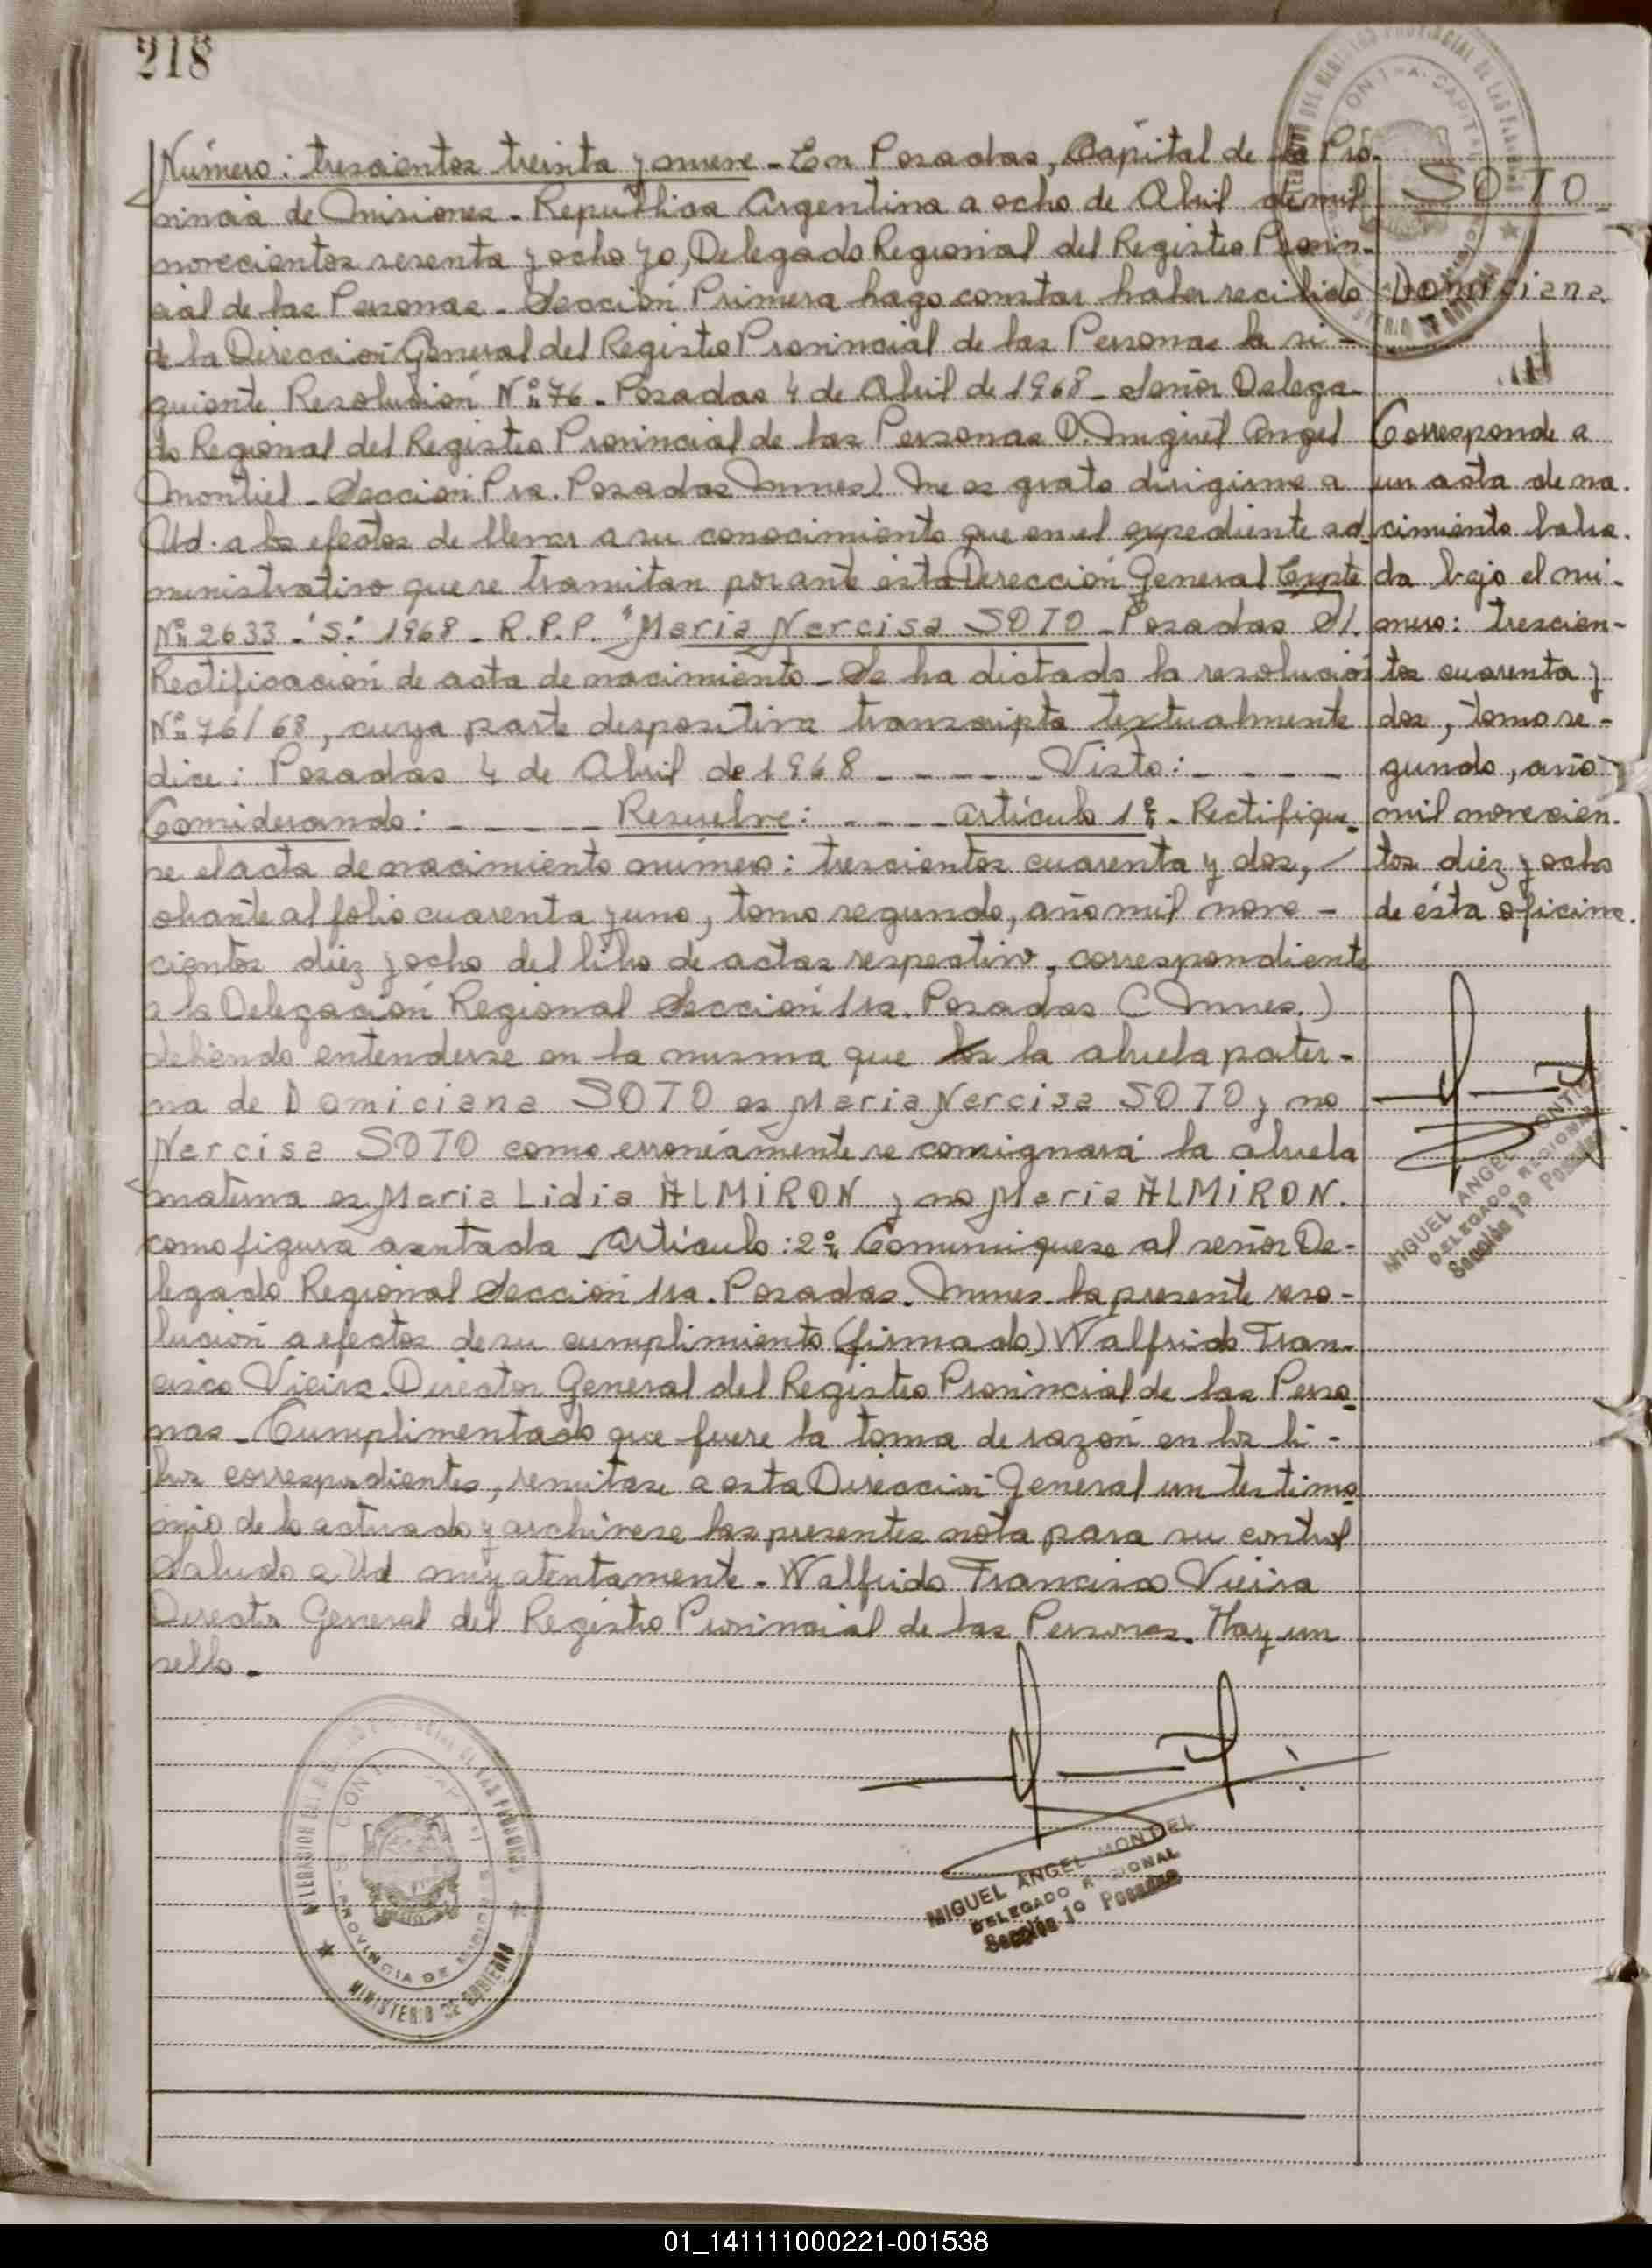 218
Número: trescientos treinta y nueve - En Posadas, Capital de la Pro-
vincia de Misiones - República Argentina a ocho de Abril de mil
novecientos sesenta y ocho yo, Delegado Regional del Registro Provin-
cial de las Personas - Sección Primera hago constar haber recibido
de la Dirección General del Registro Provincial de las Personas la si-
guiente Resolución Nº 76 - Posadas 4 de Abril de 1968 - Señor Delega-
do Regional del Registro Provincial de las Personas D. Miguel Angel
Montiel - Sección Pra. Posadas Mnes) Me es grato dirigirme a
Ud. a los efectos de llevar a su conocimiento que en el expediente ad-
ministrativo que se tramitan por ante esta Dirección General Expte
Nº 2633 - "S" 1968 - R.P.P. "Maria Narcisa SOTO - Posadas S/.
Rectificación de acta de nacimiento - Se ha dictado la resolución
Nº 76/68, cuya parte despositiva transcripta textualmente
dice: Posadas 4 de Abril de 1968 - - - - - Visto: - - - -
Considerando: - - - - - Resuelve: - - - - Artículo 1º - Rectifique-
se el acta de nacimiento número: trescientos cuarenta y dos,
obrante al folio cuarenta y uno, tomo segundo, año mil nove -
cientos diez y ocho del libro de actas respectivo, correspondiente
a la Delegación Regional Sección 1ra. Posadas (Mnes.)
debiendo entenderse en la misma que la abuela pater-
na de Domiciana SOTO es Maria Narcisa SOTO y no
Narcisa SOTO como erróneamente se consignara la abuela
materna es Maria Lidia ALMIRON y no Maria ALMIRON.
como figura asentada - Artículo: 2º Comuniquese al señor De-
legado Regional Sección 1ra. Posadas. Mnes. la presente reso-
lución a efectos de su cumplimiento (firmado) Walfrido Fran-
cisco Vieira. Director General del Registro Provincial de las Perso-
nas - Cumplimentado que fuere la toma de razón en los li-
bros correspondientes, remitase a esta Dirección General un testimo-
nio de lo actuado y archivese las presentes nota para su control
Saludo a Ud muy atentamente - Walfrido Francisco Vieira
Director General del Registro Provincial de las Personas. Hay un
sello.
SOTO
Domiciana
Corresponde a
un acta de na-
cimiento labra-
da bajo el nú-
mero: trescien-
tos cuarenta y
dos, tomo se-
gundo, año
mil novecien-
tos diez y ocho
de ésta oficina.
MIGUEL ANGEL MONTIEL
DELEGADO REGIONAL
Sección 1º Posadas
MIGUEL ANGEL MONTIEL
DELEGADO REGIONAL
Sección 1º Posadas
PROVINCIA DE MISIONES
MINISTERIO DE GOBIERNO
01_141111000221-001538